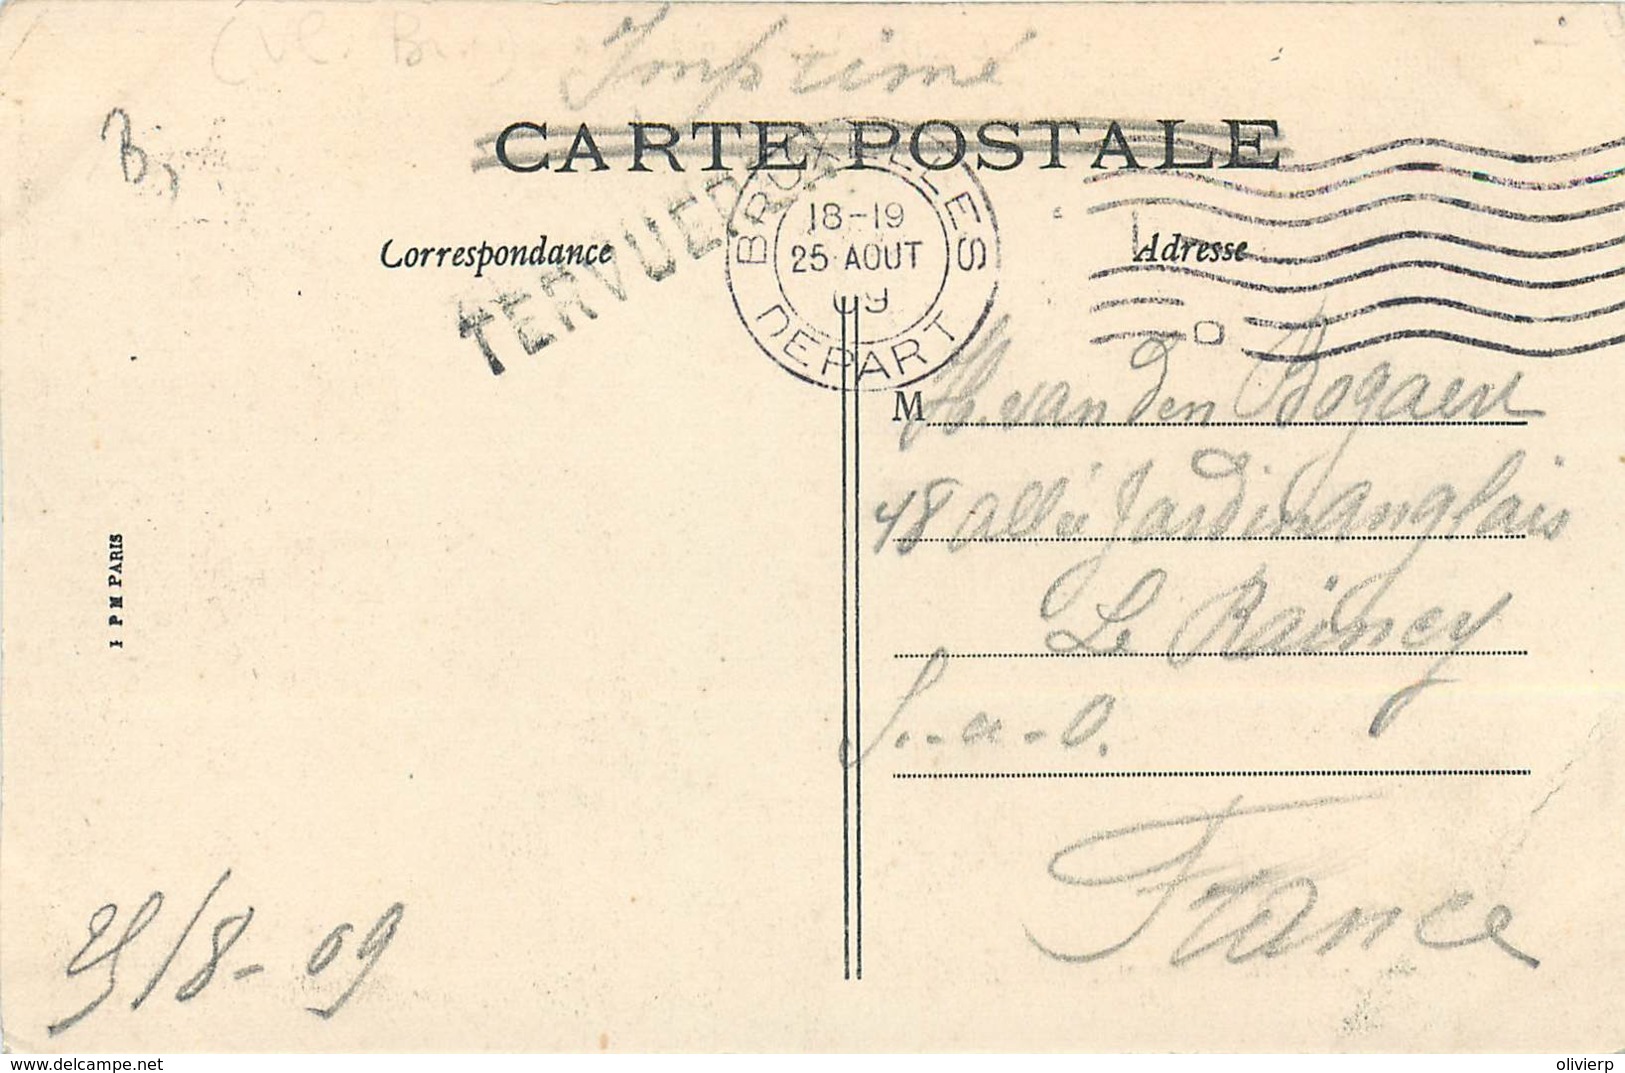 Imprimé
CARTE POSTALE
TERVUEREN
BRUXELLES
18-19
25 AOUT
09
DEPART
Correspondance
Adresse
M
van den Bogaert
48 allée Jardin anglais
Le Raincy
S.-et-O.
France
I P M PARIS
25/8-09
delcampe.net
olivierp